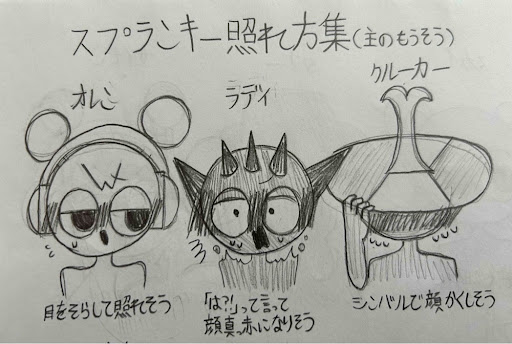 スプランキー照れ方集(主のもうそう)
オレン
ラディ
クルーカー
目をそらして照れそう
「は?!」って言って
顔真っ赤になりそう
シンバルで顔かくしそう